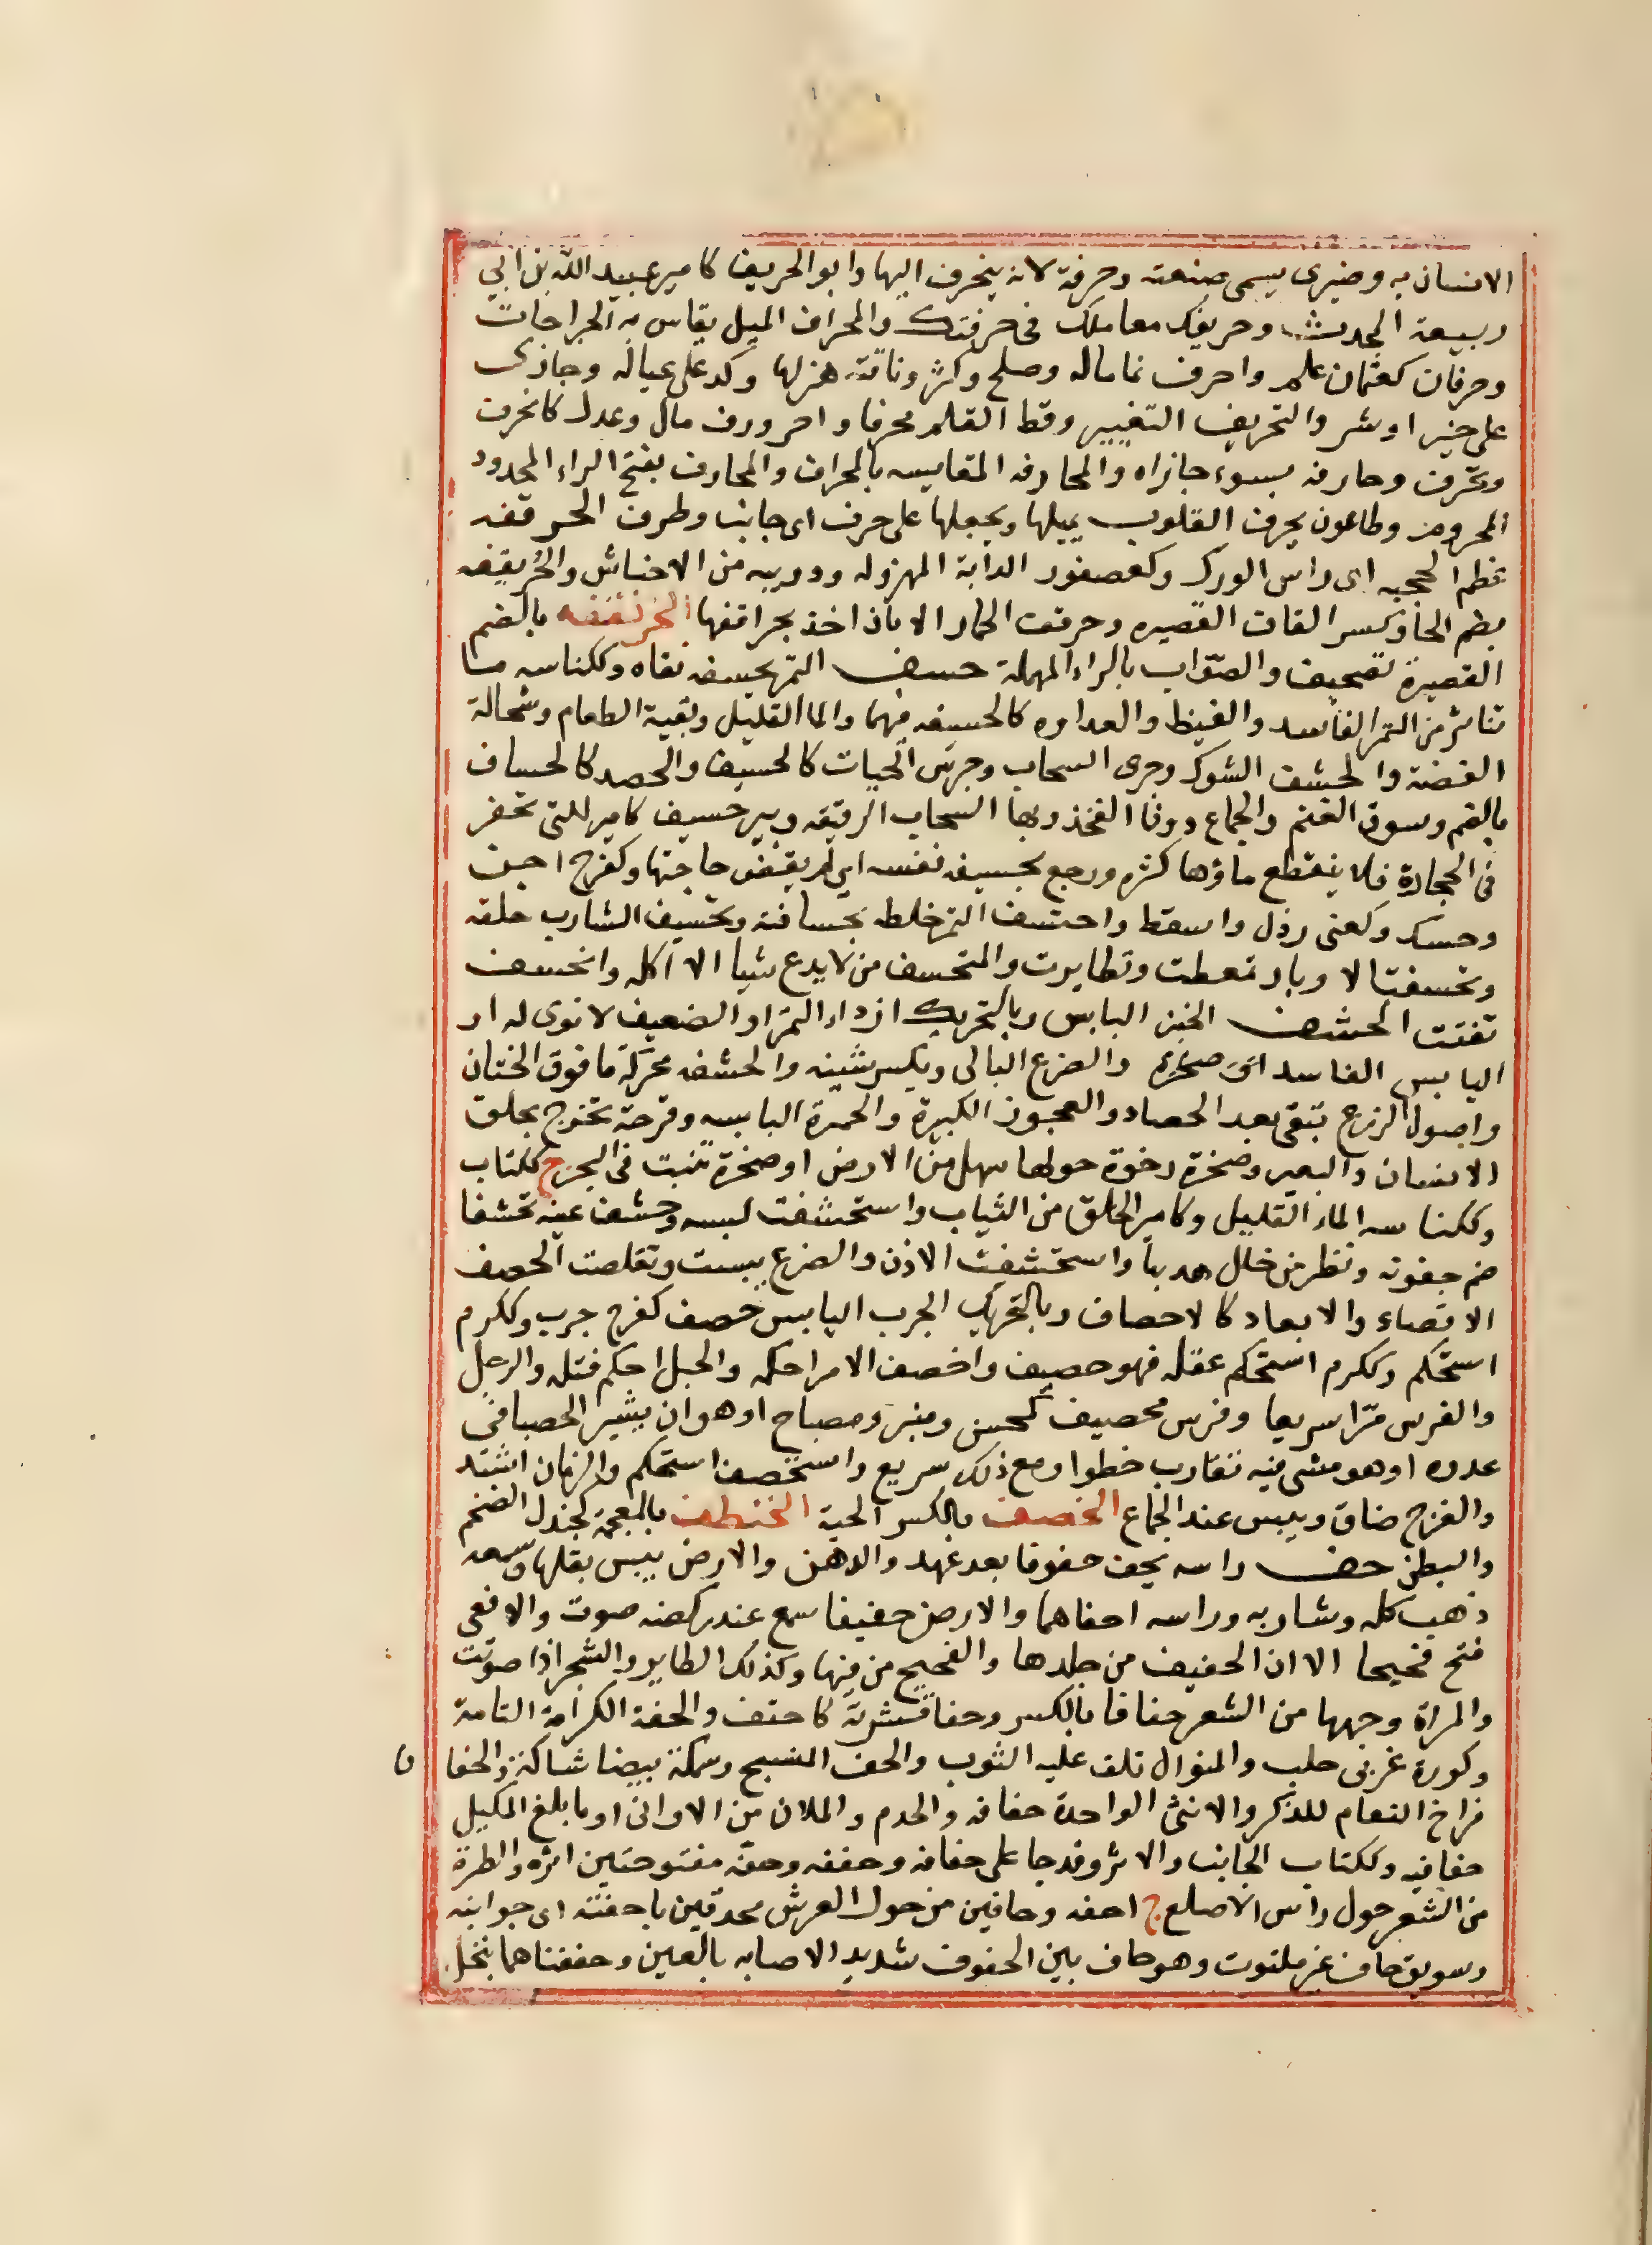 الانسان به وضيرى يسمى صنعته وحرفة لانه ينحرف اليها وابو الحريف كامير عبيد الله بن ابي
ربيعة المحدث وحريفك معاملك في حرفتك والمحراف الميل يقاس به الجراحات
وحرفان كعثمان علم واحرف نما ماله وصلح وكثر وناقته هزلها وكد على عياله وجازى
على خير او شر والتحريف التغيير وقط القلم محرفا واحرورف مال وعدل كانحرف
وتحرف وحارفه بسوء جازاه والمحارفه المقايسه بالمحراف والمحارف بفتح الراء المحدود
المحروم وطاعون يحرف القلوب يميلها ويجعلها على حرف اى جانب وطرف الحرقفه
عظم الحجبه اى راس الورك وكعصفور الدابة المهزوله ودويبه من الاحناش والحُريقفه
بضم الحا وكسر القاف القصيره وحرقف الحمار الاتان اخذ بحراقفها الحرنقفه بالضم
القصيرة تصحيف والصّواب بالراء المهملة حسف التمر يحسفه نقاه وككناسه ما
تناثر من التمر الفاسد والغيظ والعداوه كالحسيفه فيهما والماالقليل وبقية الطعام وسُحالة
الفضة والحسف الشوك وجرى السحاب وجرس الحيات كالحسيف والحصد كالحساف
بالضم وسوق الغنم والجماع دون الفخذ وبها السحاب الرقيقه وبير حسيف كامير للتى تحفر
فى الحجارة فلا ينقطع ماؤها كثره ورجع بحسيفه نفسه اي لم يقض حاجتها وكفرح احن
وحسك وكعنى رذل واسقط واحتسف التمر خلط بحسافته وتحسيف الشارب حلقه
وتحسفت الاوبار تمعطت وتطايرت والمتحسف من لا يدع شيا الا اكله وانحسف
تفتت الحشف الخبز اليابس وبالتحريك اردا التمر او الضعيف لا نوى له او
اليابس الفاسد اى صخره والضرع البالى ويكسر شينه والحشفه محركة ما فوق الختان
واصول الزرع تبقى بعد الحصاد والعجوز الكبيرة والخمرة اليابسه وقرحة تخرج بحلق
الانسان والبعير وصخرة رخوة حولها سهل من الارض او صخرة تنبت في البحر ج ككتاب
وككناسه الماء القليل وكامير الخلق من الثياب واستحشفت لبسه وحشف عينه تحشفا
ضم جفونه ونظر من خلل هدبها واستحشفت الاذن والضرع يبست وتقلصت الحصف
الاقصاء والابعاد كالاحصاف وبالتحريك الجرب اليابس حصف كفرح جرب وككرم
استحكم وككرم استحكم عقله فهو حصيف واحصف الامر احكمه والحبل احكم فتله والرجل
والفرس مرّا سريعا وفرس محصيف كمحسن ومنبر ومصباح او هو ان يثير الحصبا فى
عدوه او هو مشى فيه تقارب خطوا ومع ذلك سريع واستحصف استحكم والزمان اشتد
والفرج ضاق ويبس عند الجماع الخصف بالكسر الحية الخنطف بالمعجمة كجندل الضخم
والبطن حف راسه يحف حفوفا بعد عهد والدهن والارض يبس بقلها وسمعه
ذهب كله وشاربه وراسه احفاهما والارض حفيفا سمع عند ركضه صوت والافعى
فتح فحيحا الا ان الحفيف من جلدها والفحيح من فيها وكذلك الطاير والشجر اذا صوّتت
والمراة وجهها من الشعر حفافا بالكسر وحفا قشرته كاحتف والحفة الكرامة التامة
وكورة غربى حلب والمنوال تلف عليه الثوب والحف المنسج وسمكة بيضا شاكة والحفا
فراخ النعام للذكر والانثى الواحدة حفافه والخدم والملان من الاوانى او ما بلغ المكيل
حفافيه وككتاب الجانب والاثر وقد جا على حفافه وحففه وحفه مفتوحتين اثره والطرة
من الشعر حول راس الاصلع ج احفه وحافين من حول العرش محدقين باحفته اى جوانبه
وسويق حاف غير ملتوت وهو حاف بين الحفوف شديد الاصابه بالعين وحففناهما بنخل